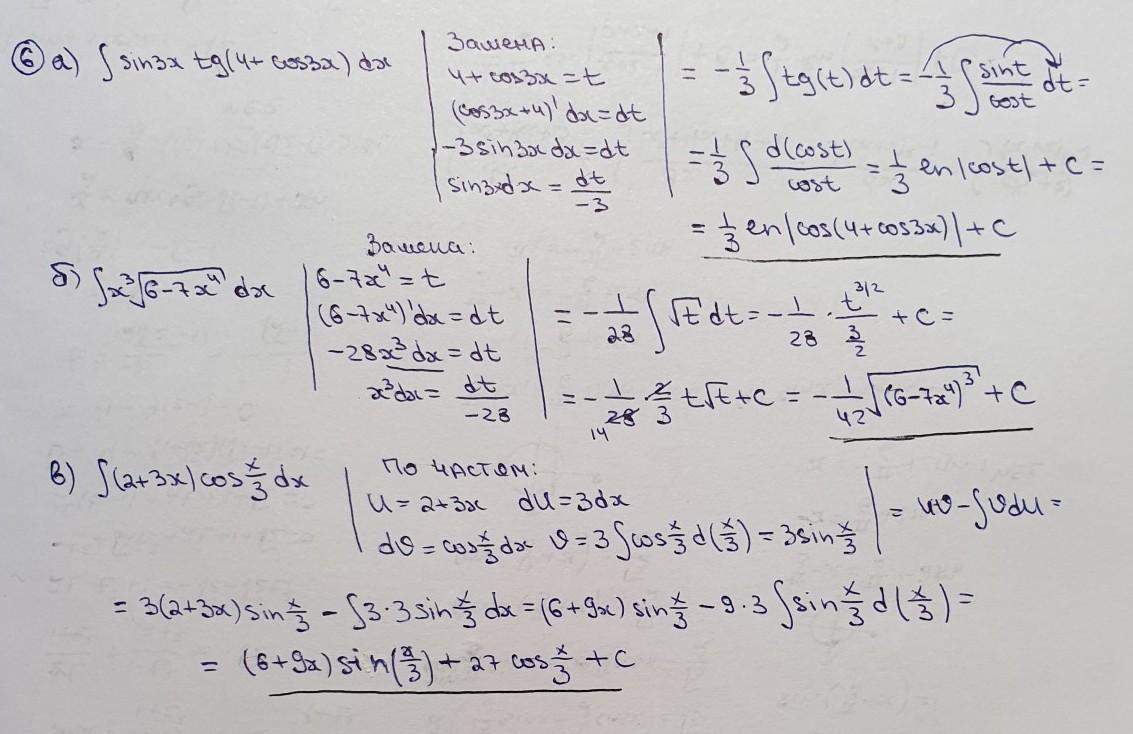 ⑥ а) ∫ sin3x tg(4+ cos3x) dx | Замена: 4+cos3x=t (cos3x+4)' dx=dt -3sin3x dx=dt sin3xdx = dt/-3 | = -1/3 ∫ tg(t) dt = -1/3 ∫ sint/cost dt =
= 1/3 ∫ d(cost)/cost = 1/3 ln|cost| + C =
= 1/3 ln|cos(4+cos3x)| + C
б) ∫ x³√(6-7x⁴) dx | Замена: 6-7x⁴=t (6-7x⁴)'dx=dt -28x³dx=dt x³dx= dt/-28 | = -1/28 ∫ √t dt = -1/28 · t^(3/2)/(3/2) + C =
= -1/28 · 2/3 t√t + C = -1/42 √(6-7x⁴)³ + C
14
в) ∫(2+3x) cos x/3 dx | По частям: u=2+3x du=3dx dv=cos x/3 dx v=3∫cos x/3 d(x/3)=3sin x/3 | = uv-∫vdu=
= 3(2+3x) sin x/3 - ∫3·3sin x/3 dx = (6+9x) sin x/3 - 9·3 ∫sin x/3 d(x/3) =
= (6+9x) sin(x/3) + 27 cos x/3 + C